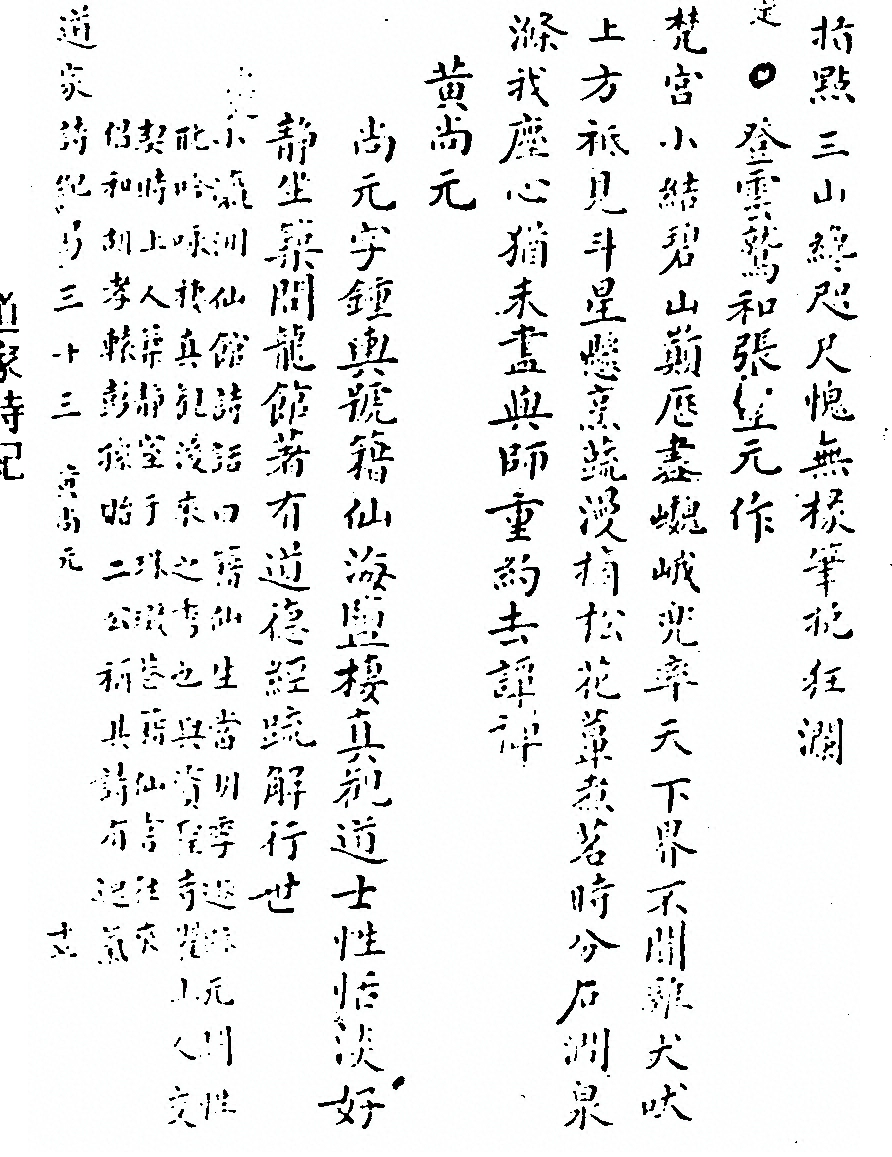 指點三山纔咫尺愧無椽筆挽狂瀾
定
○登雲鷲和張堃元作
梵宮小結碧山巔歷盡巍峨兜率天下界不聞雞犬吠
上方祗見斗星懸烹蔬漫摘松花蕈煮茗時分石澗泉
滌我塵心猶未盡與師重約去譚禪
黃尚元
尚元字鍾輿號籍仙海鹽棲真觀道士性恬淡好
靜坐築問龍館著有道德經疏解行世
小瀛洲仙館詩話曰籍仙生當明季遜跡元門性
耽吟咏棲真觀後來之秀也與資聖寺上人交
契時上人築靜室于珠巷籍仙嘗往來
倡和胡孝轅彭孫貽二公稱其詩有逸氣
道家詩紀 三十三 黃尚元
道家詩紀